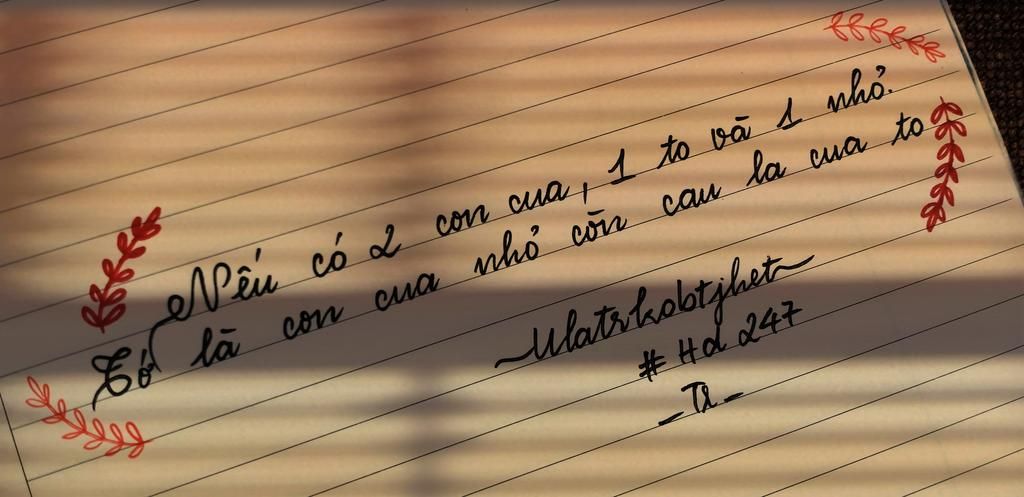 Nếu có 2 con cua, 1 to và 1 nhỏ.
Tớ là con cua nhỏ còn cau la cua to
~Ulatrkobtjhet~
# Hd 247
_Tl_